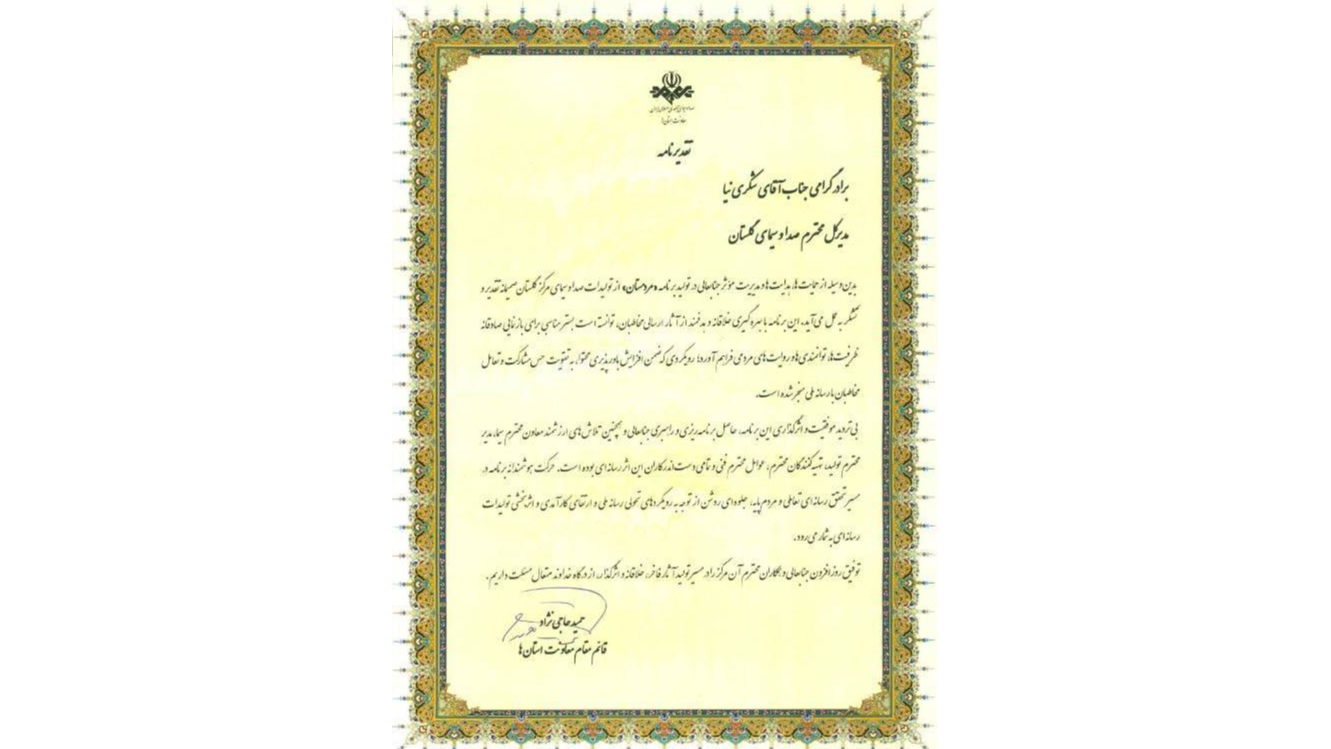 صدا و سیمای جمهوری اسلامی ایران
معاونت استان‌ها
تقدیرنامه
برادر گرامی جناب آقای شکری نیا
مدیرکل محترم صدا و سیمای گلستان
بدین وسیله از حمایت ها، هدایت ها و مدیریت مؤثر جنابعالی در تولید برنامه «مردستان» از تولیدات صدا و سیمای مرکز گلستان صمیمانه تقدیر و
تشکر به عمل می‌آید. این برنامه با بهره گیری خلاقانه و هدفمند از آثار ارسالی مخاطبان، توانسته است بستر مناسبی برای بازنمایی صادقانه
ظرفیت ها، توانمندی ها و روایت های مردمی فراهم آورد؛ رویکردی که ضمن افزایش باورپذیری محتوا، به تقویت حس مشارکت و تعامل
مخاطبان با رسانه ملی منجر شده است.
بی تردید موفقیت و اثرگذاری این برنامه، حاصل برنامه‌ریزی و راهبری جنابعالی و همچنین تلاش های ارزشمند معاون محترم سیما، مدیر
محترم تولید، تهیه کنندگان محترم، عوامل محترم فنی و تمامی دست اندرکاران این اثر رسانه ای بوده است. حرکت هوشمندانه برنامه در
مسیر تحقق رسانه ای تعاملی و مردم پایه، جلوه‌ای روشن از توجه به رویکردهای تحولی رسانه ملی و ارتقای کارآمدی و اثربخشی تولیدات
رسانه ای به شمار می رود.
توفیق روزافزون جنابعالی و همکاران محترم آن مرکز را در مسیر تولید آثار فاخر، خلاقانه و اثرگذار، از درگاه خداوند متعال مسئلت داریم.
حمید حاجی نژاد
قائم مقام معاونت استان ها